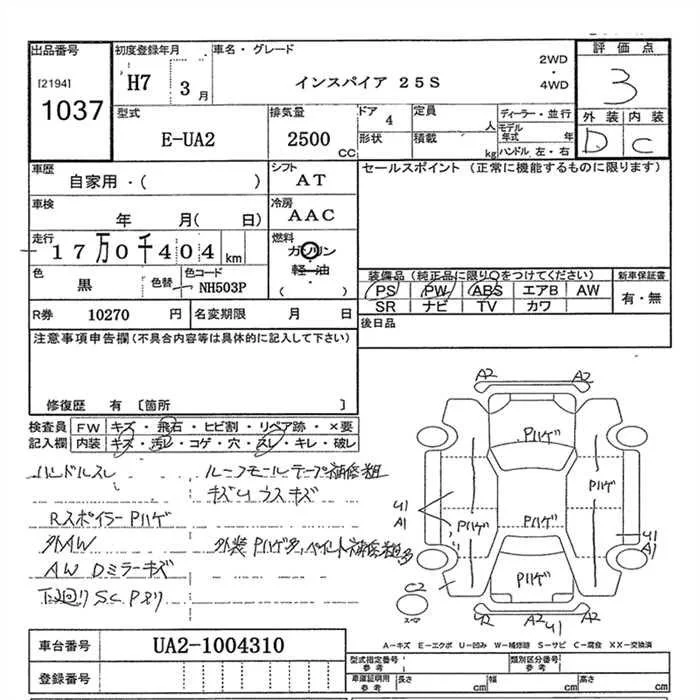 出品番号
[2194]
1037
初度登録年月
H7 3月
車名・グレード
インスパイア 25S
2WD
・
4WD
評価点
3
外装 内装
D C
型式
E-UA2
排気量
2500
CC
ドア
4
形状
定員
人
積載
kg
ディーラー・並行
モデル年式 年
ハンドル 左・右
車歴
自家用・( )
シフト
AT
セールスポイント (正常に機能するものに限ります)
車検
年 月( 日)
冷房
AAC
走行
17万0千404km
燃料
ガソリン
・
軽油
・
( )
色
黒
色替
色コード
NH503P
装備品 (純正品に限り〇をつけてください)
PS PW ABS エアB AW
SR ナビ TV カワ
新車保証書
有・無
R券 10270 円
名変期限 月 日
後日品
注意事項申告欄(不具合内容等は具体的に記入して下さい)
修復歴 有 〔箇所 〕
検査員
記入欄
FW キズ・飛石・ヒビ割・リペア跡・×要
内装 キズ・汚レ・コゲ・穴・スレ・キレ・破レ
ハンドルスレ
ルーフモールテープ補修粗
キズU ウスキズ
Rスポイラー Pハゲ
外AW
外装 Pハゲ多、ペイント補修粗多
AW Dミラーキズ
下廻りSC Pメリ
A2
A2
A2
Pハゲ
Pハゲ
Pハゲ
Pハゲ
Pハゲ
U1
A1
U1
A1
C2
U2
A2
U1
U2
A…キズ E…エクボ U…凹み W…補修跡 S…サビ C…腐食 XX…交換済
車台番号
UA2-1004310
登録番号
型式指定番号
参考
類別区分番号
参考
車庫証明用
参考
長さ cm
幅 cm
高さ cm